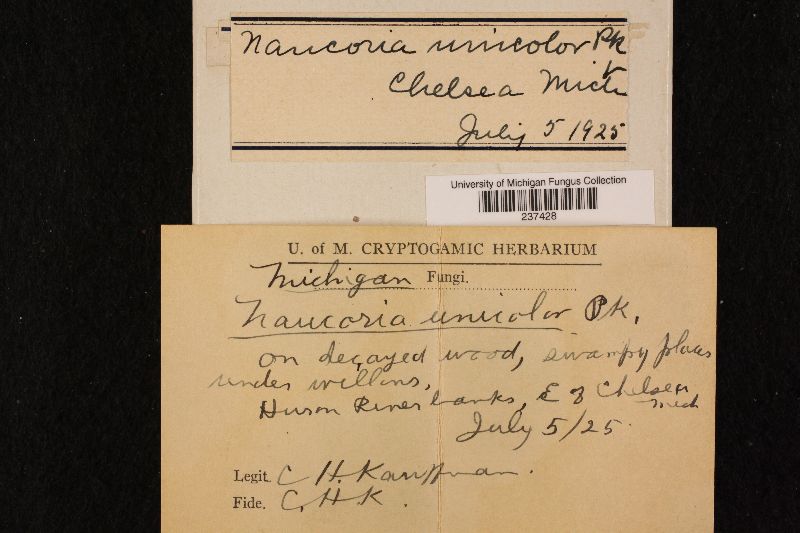 Naucoria unicolor Pk
Chelsea Mich
July 5 1925
University of Michigan Fungus Collection
237428
U. of M. CRYPTOGAMIC HERBARIUM
Michigan Fungi.
Naucoria unicolor Pk.
on decayed wood, swampy places
under willows.
Huron River banks, E of Chelsea
Mich
July 5/25.
Legit. C H. Kauffman.
Fide. C. H. K.